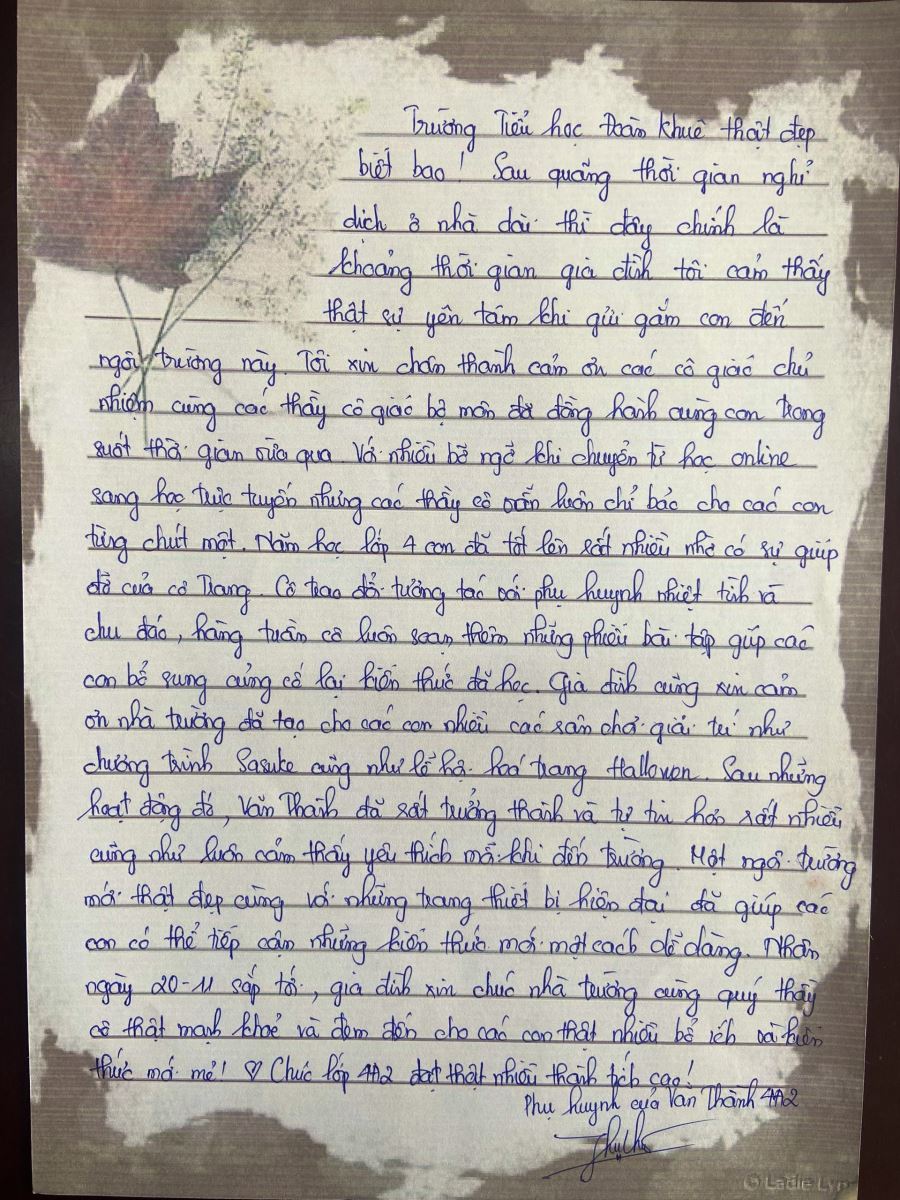 Trường Tiểu học Đoàn Khuê thật đẹp
biết bao! Sau quãng thời gian nghỉ
dịch ở nhà dài thì đây chính là
khoảng thời gian gia đình tôi cảm thấy
thật sự yên tâm khi gửi gắm con đến
ngôi trường này. Tôi xin chân thành cảm ơn các cô giáo chủ
nhiệm cùng các thầy cô giáo bộ môn đã đồng hành cùng con trong
suốt thời gian vừa qua. Với nhiều bỡ ngỡ khi chuyển từ học online
sang học trực tuyến nhưng các thầy cô vẫn luôn chỉ bảo cho các con
từng chút một. Năm học lớp 4 con đã tốt lên rất nhiều nhờ có sự giúp
đỡ của cô Trang. Cô trao đổi tương tác với phụ huynh nhiệt tình và
chu đáo, hàng tuần cô luôn soạn thêm những phiếu bài tập giúp các
con bổ sung củng cố lại kiến thức đã học. Gia đình cũng xin cảm
ơn nhà trường đã tạo cho các con nhiều các sân chơi giải trí như
chương trình Sasuke cũng như lễ hội hoá trang Hallowen. Sau những
hoạt động đó, Văn Thành đã rất trưởng thành và tự tin hơn rất nhiều
cũng như luôn cảm thấy yêu thích mỗi khi đến trường. Một ngôi trường
mới thật đẹp cùng với những trang thiết bị hiện đại đã giúp các
con có thể tiếp cận những kiến thức mới một cách dễ dàng. Nhân
ngày 20-11 sắp tới, gia đình xin chúc nhà trường cùng quý thầy
cô thật mạnh khoẻ và đem đến cho các con thật nhiều bổ ích và kiến
thức mới mẻ! ♡ Chúc lớp 4A2 đạt thật nhiều thành tích cao!
Phụ huynh của Văn Thành 4A2
© Ladie Lyn